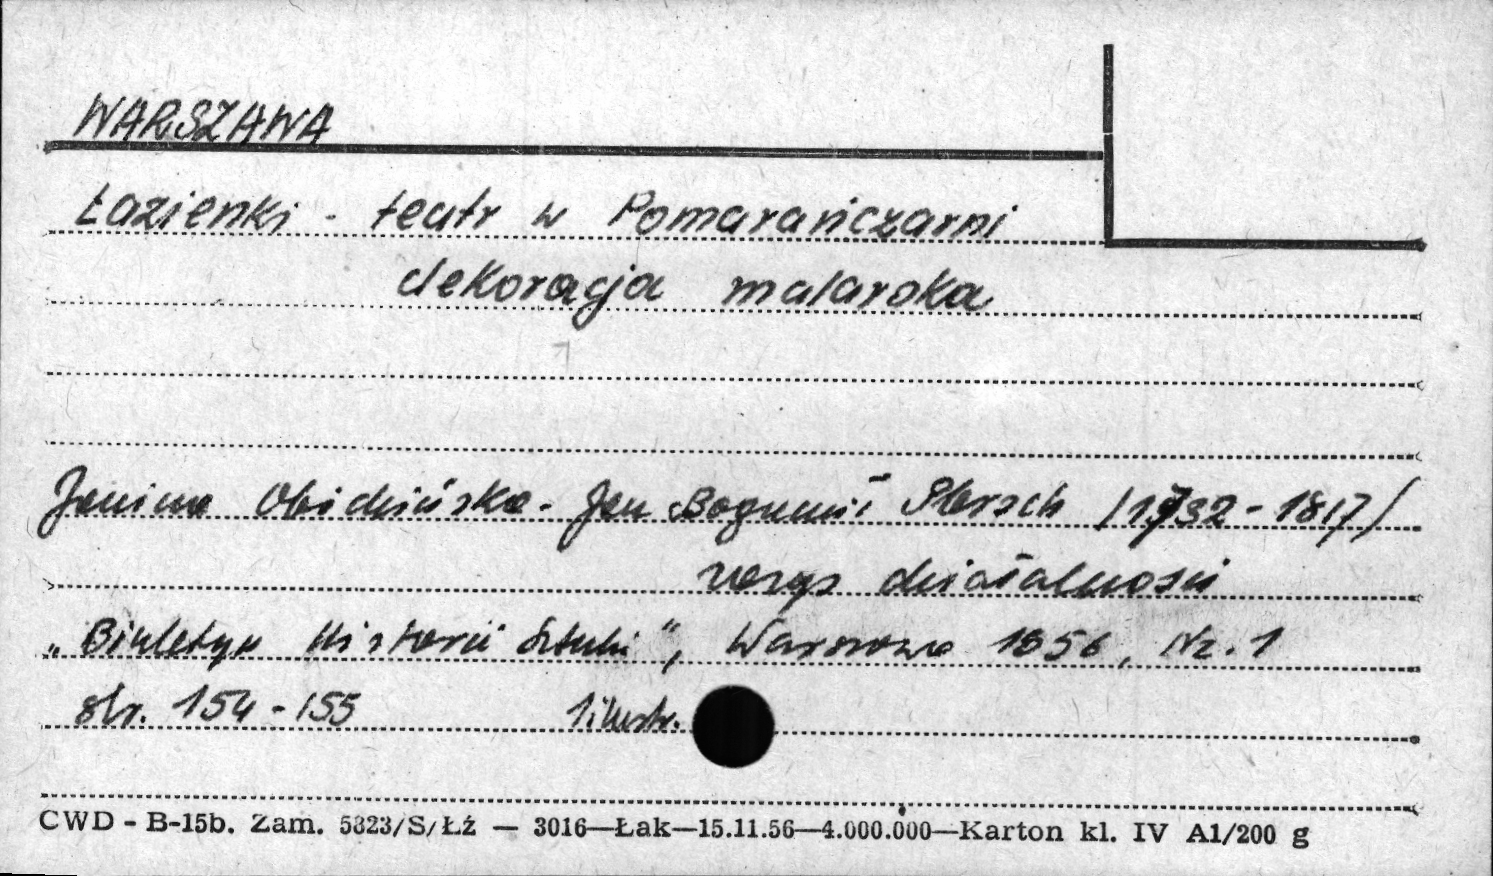 WARSZAWA
Łazienki - teatr w Pomarańczarni
dekoracja malarska
Janina Obidzińska - Jan Bogumił Plersch /1732-1817/
zarys działalności
„Biuletyn Historii Sztuki", Warszawa 1956, Nr. 1
str. 154-155 1 ilustr.
CWD - B-15b. Zam. 5823/S/Łź — 3016—Łak—15.11.56—4.000.000—Karton kl. IV A1/200 g